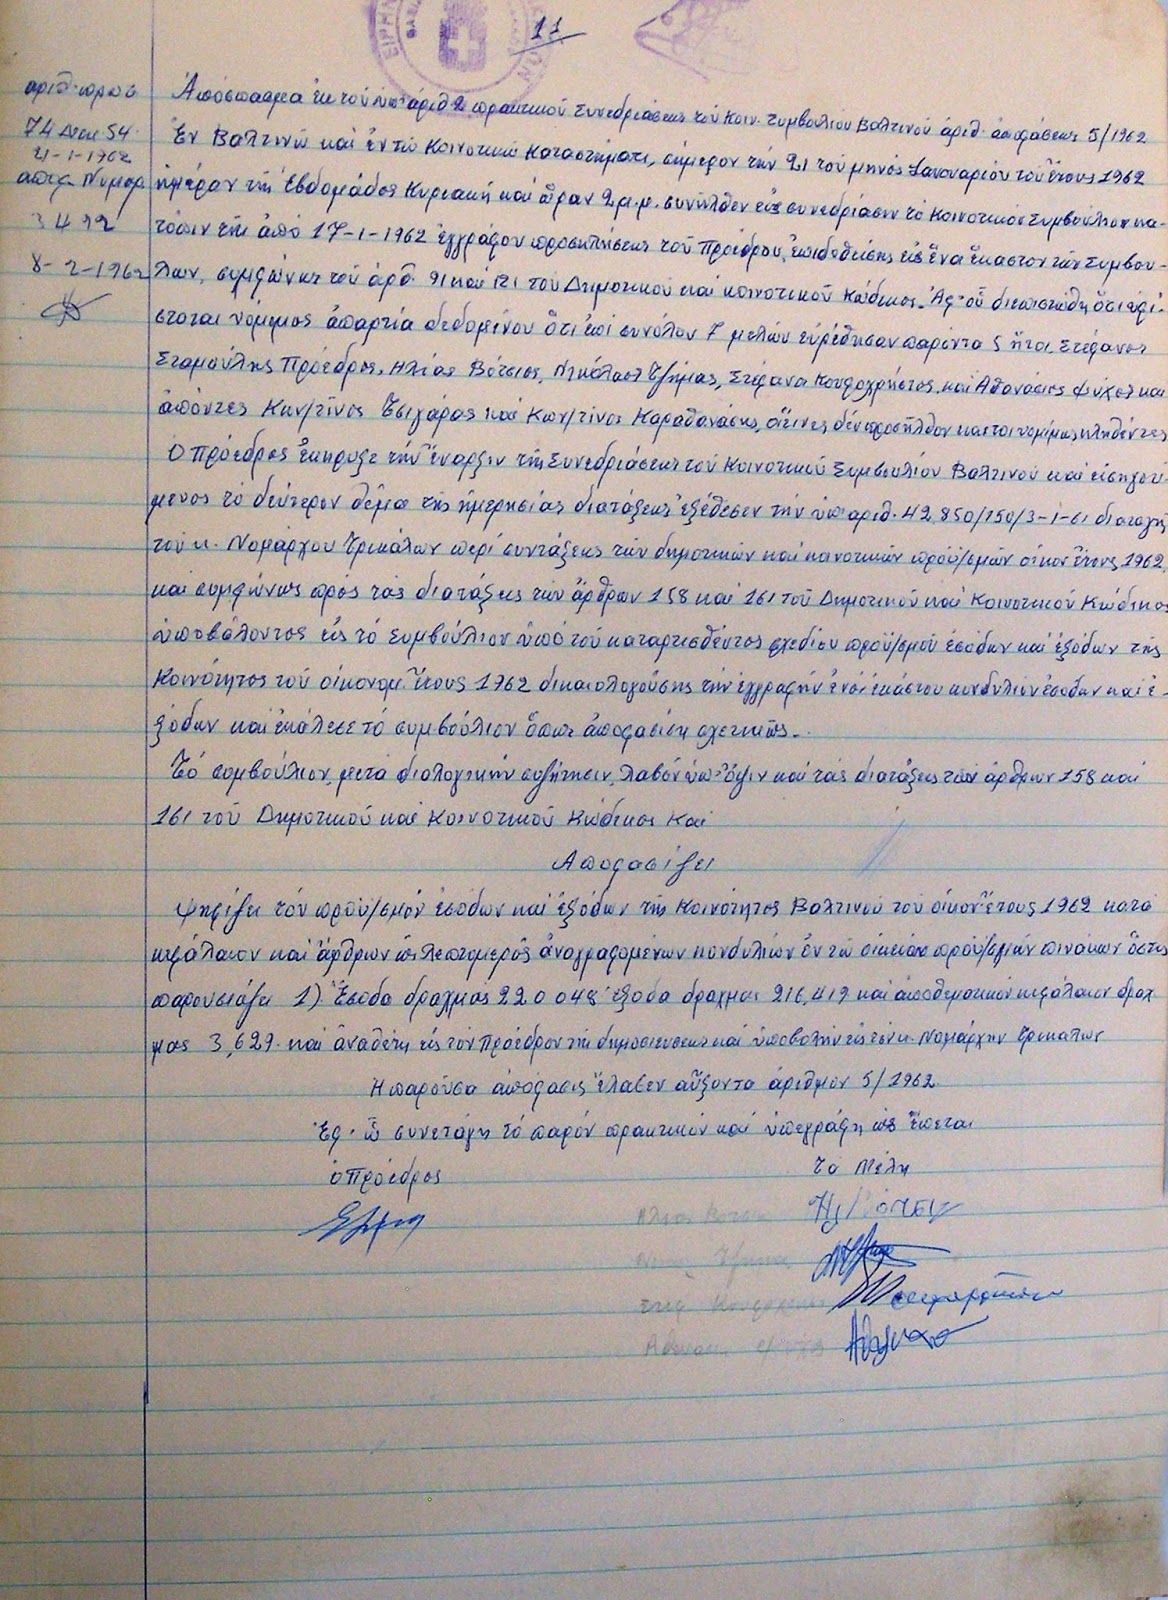 11
ἀριθ. πρωτ.
74 Διεκ. 54
21-1-1962
3492
8-2-1962
Ἀπόσπασμα ἐκ τοῦ ὑπ' ἀριθ 2 πρακτικοῦ Συνεδριάσεως τοῦ Κοιν. Συμβουλίου Βαλτινοῦ ἀριθ. ἀποφάσεως 5/1962
Ἐν Βαλτινῷ καὶ ἐν τῷ Κοινοτικῷ Καταστήματι, σήμερον τὴν 21 τοῦ μηνὸς Ἰανουαρίου τοῦ ἔτους 1962
ἡμέραν τῆς ἑβδομάδος Κυριακὴ καὶ ὥραν 2 μ.μ. συνῆλθεν εἰς συνεδρίασιν τὸ Κοινοτικὸν Συμβούλιον κα-
τόπιν τῆς ἀπὸ 17-1-1962 ἐγγράφου προσκλήσεως τοῦ Προέδρου, ἐπιδοθείσης εἰς ἕνα ἕκαστον τῶν Συμβού-
λων, συμφώνως τοῦ ἀρθ. 91 καὶ 121 τοῦ Δημοτικοῦ καὶ κοινοτικοῦ Κώδικος. Ἀφ' οὗ διεπιστώθη ὅτι ὑφί-
σταται νόμιμος ἀπαρτία δεδομένου ὅτι ἐπὶ συνόλου 7 μελῶν εὑρέθησαν παρόντα 5 ἤτοι Στέφανος
Σταμούλης Πρόεδρος, Ἠλίας Βότσιος, Νικόλαος Τζήμας, Στέφανο Κουφοχρήστος, καὶ Ἀθανάσιος Ψύχος καὶ
ἀπόντες Κων/τῖνος Τσιγάρας καὶ Κων/τῖνος Καραθανάσης, οἵτινες δὲν προσῆλθον καίτοι νομίμως κληθέντες
Ὁ Πρόεδρος ἐκήρυξε τὴν ἔναρξιν τῆς Συνεδριάσεως τοῦ Κοινοτικοῦ Συμβουλίου Βαλτινοῦ καὶ εἰσηγού-
μενος τὸ δεύτερον θέμα τῆς ἡμερησίας διατάξεως ἐξέθεσεν τὴν ὑπ' ἀριθ. 42.850/150/3-1-61 διαταγὴ
τοῦ κ. Νομάρχου Τρικάλων περὶ συντάξεως τῶν δημοτικῶν καὶ κοινοτικῶν προϋ/σμῶν οἰκον ἔτους 1962,
καὶ συμφώνως πρὸς τὰς διατάξεις τῶν ἄρθρων 158 καὶ 161 τοῦ Δημοτικοῦ καὶ Κοινοτικοῦ Κώδικος
ὑποβάλοντος εἰς τὸ Συμβούλιον ὑπὸ τοῦ καταρτισθέντος σχεδίου προϋ/σμοῦ ἐσόδων καὶ ἐξόδων τῆς
Κοινότητος τοῦ οἰκονομ. ἔτους 1962 δικαιολογούσης τὴν ἐγγραφὴν ἑνὸς ἑκάστου κονδυλίου ἐσόδων καὶ ἐ-
ξόδων καὶ ἐκάλεσε τὸ συμβούλιον ὅπως ἀποφασίσῃ σχετικῶς.
Τὸ συμβούλιον, μετὰ διαλογικὴν συζήτησιν, λαβὸν ὑπ' ὄψιν καὶ τὰς διατάξεις τῶν ἄρθρων 158 καὶ
161 τοῦ Δημοτικοῦ καὶ Κοινοτικοῦ Κώδικος Καὶ
Ἀποφασίζει
Ψηφίζει τὸν προϋ/σμὸν ἐσόδων καὶ ἐξόδων τῆς Κοινότητος Βαλτινοῦ τοῦ οἰκον ἔτους 1962 κατὰ
κεφάλαιον καὶ ἄρθρων ὡς λεπτομερῶς ἀναγραφομένων κονδυλίων ἐν τῷ οἰκείῳ προϋ/σμῶν πινάκων ὅστις
παρουσιάζει 1) Ἔσοδα δραχμὰς 220 048 ἔξοδα δραχμὰς 216,419 καὶ ἀποθεματικὸν κεφάλαιον δραχ
μὰς 3,629. καὶ ἀναθέτη εἰς τὸν Πρόεδρον τῆς δημοσιεύσεως καὶ ὑποβολὴν εἰς τὸν κ. Νομάρχην Τρικάλων
Ἡ παροῦσα ἀπόφασις ἔλαβεν αὔξοντα ἀριθμὸν 5/1962.
Ἐφ' ᾧ συνετάγη τὸ παρὸν πρακτικὸν καὶ ὑπεγράφη ὡς ἕπεται
ὁ Πρόεδρος
τὰ Μέλη